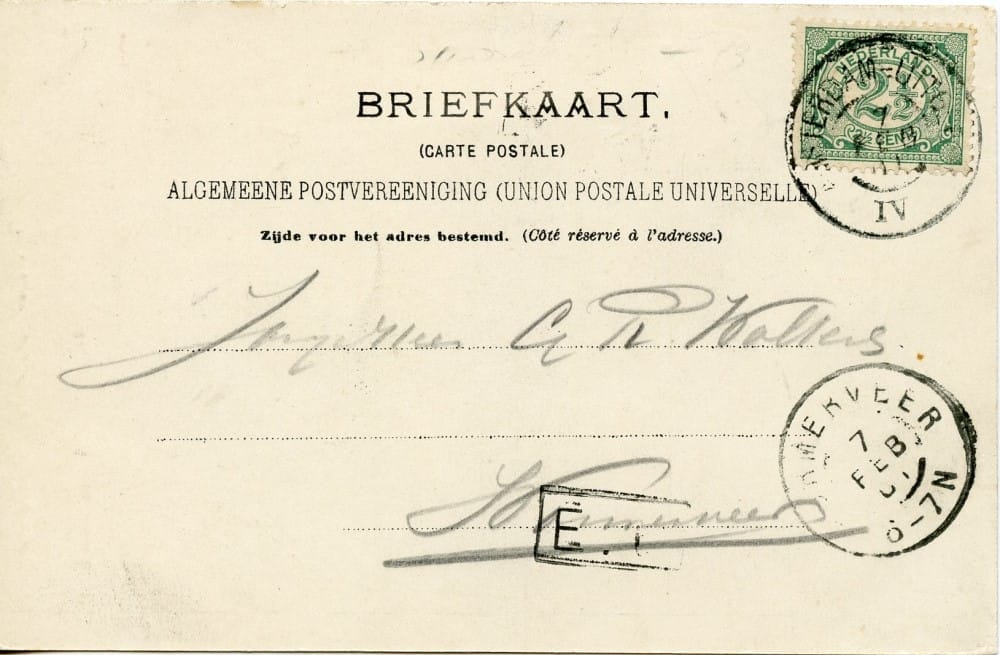 BRIEFKAART.
(CARTE POSTALE)
ALGEMEENE POSTVEREENIGING (UNION POSTALE UNIVERSELLE)
Zijde voor het adres bestemd. (Côté réservé à l'adresse.)
NEDERLAND
2½
2½ CENT
IV
G R Wolkers
Wormerveer
ORMERVEER
7
FEB
6-7N
E.